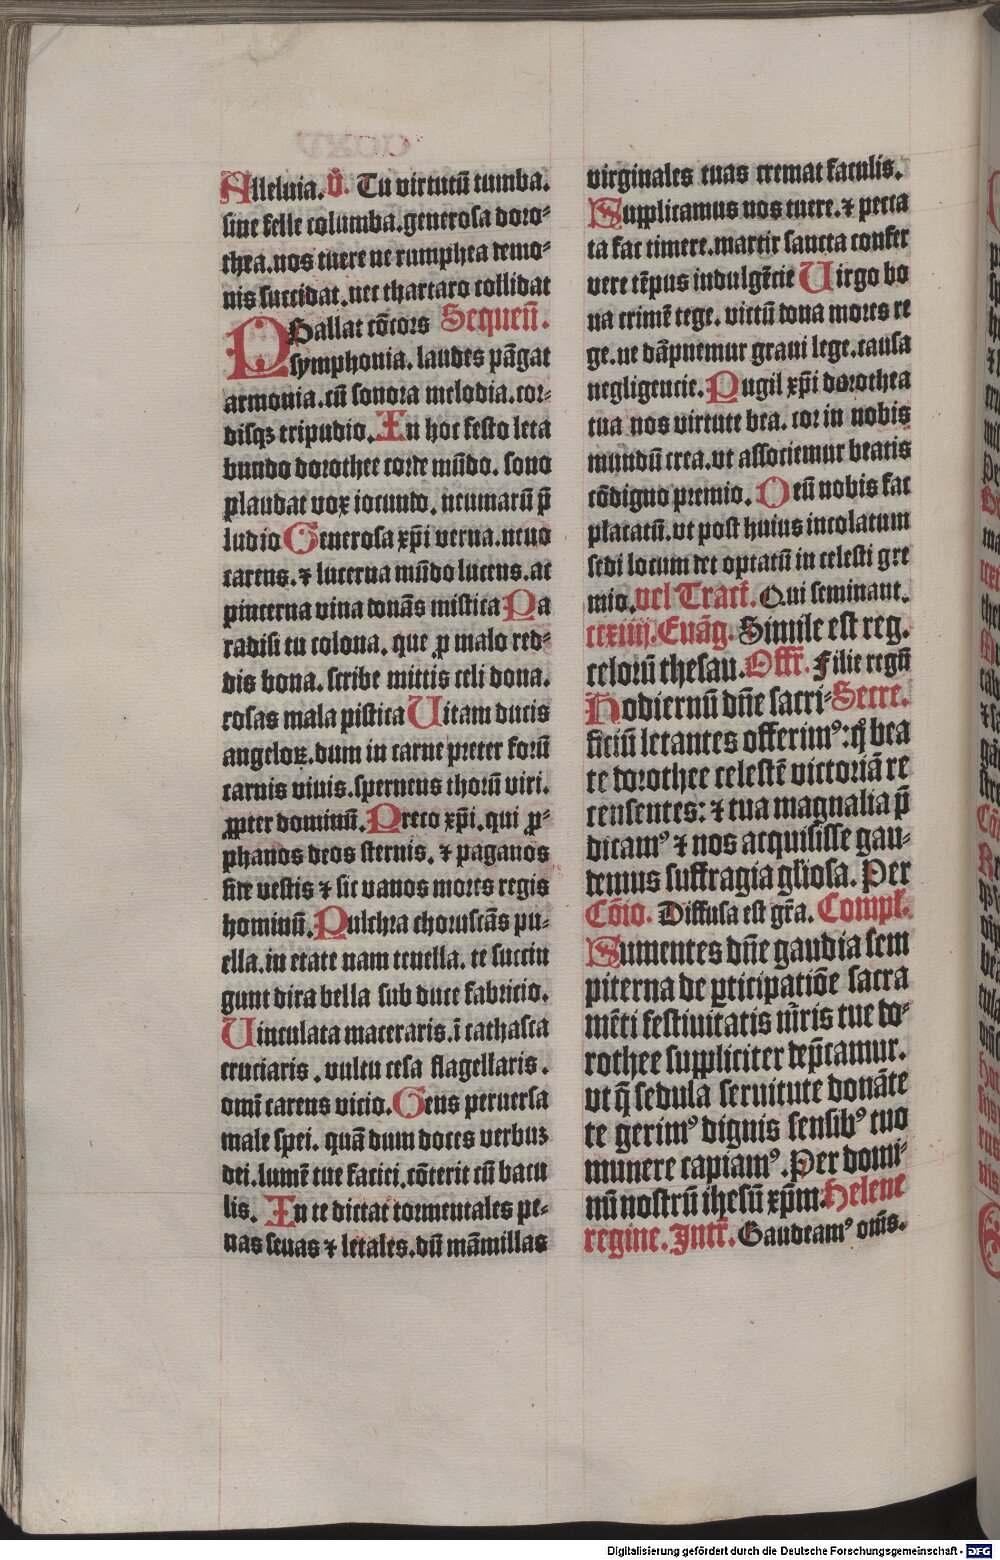 Alleluia. V̊. Tu virtutū tumba.
sine felle columba. generosa doro⸗
thea. nos tuere ne rumphea demo⸗
nis succidat. nec thartaro collidat
PSallat cōcors Sequen̄.
symphonia. laudes pāgat
armonia. cū sonora melodia. cor⸗
disqꝫ tripudio. In hoc festo leta
bundo dorothee corde mūdo. sono
plaudat vox iocundo. neumarū p̄
ludio Generosa xp̄i verna. neuo
carens. ⁊ lucerna mūdo lucens. ac
pincerna vina donās mistica Pa
radisi tu colona. que ꝓ malo red⸗
dis bona. scribe mittis celi dona.
rosas mala pistica Uitam ducis
angeloꝝ. dum in carne preter forū
carnis viuis. spernens thorū viri.
ꝓpter dominū. Preco xp̄i. qui ꝓ⸗
phanos deos sternis. ⁊ paganos
fide vestis ⁊ sic vanos mores regis
hominū. Pulchra choruscās pu⸗
ella. in etate nam tenella. te succin
gunt dira bella sub duce fabricio.
Uinculata maceraris. ī cathasta
cruciaris. vultu cesa flagellaris.
omī carens vicio. Gens peruersa
male spei. quā dum doces verbuꝫ
dei. lumē tue faciei. cōterit cū bacu
lis. In te dictat tormentales pe⸗
nas seuas ⁊ letales. dū māmillas
virginales tuas cremat faculis.
Supplicamus nos tuere. ⁊ pecca
ta fac timere. martir sancta confer
vere tēpus indulgētie Uirgo bo
na crimē tege. victū dona mores re
ge. ne dāpnemur graui lege. causa
negligencie. Pugil xp̄i dorothea
tua nos virtute bea. cor in nobis
mundū crea. vt associemur beatis
cōdigno premio. Deū nobis fac
placatū. vt post huius incolatum
sedi locum det optatū in celesti gre
mio. vel Tract̄. Qui seminant.
ccxiiij. Euāg. Simile est reg.
celorū thesau. Offr̄. Filie regū
Hodiernū dn̄e sacri⸗ Secre.
ficiū letantes offerimꝰ: qͥ bea
te dorothee celestē victoriā re
censentes: ⁊ tua magnalia p̄
dicamꝰ ⁊ nos acquisisse gau⸗
demus suffragia gl̄iosa. Per
Cōio. Diffusa est gr̄a. Compl̄.
Sumentes dn̄e gaudia sem
piterna de ꝑticipatiōe sacra
mēti festiuitatis m̄ris tue do⸗
rothee suppliciter dep̄camur.
vt q̄ sedula seruitute donāte
te gerimꝰ dignis sensibꝰ tuo
munere capiamꝰ. Per domi⸗
nū nostrū ihesū xp̄m. Helene
regine. Intr̄. Gaudeamꝰ om̄s.
Digitalisierung gefördert durch die Deutsche Forschungsgemeinschaft - DFG